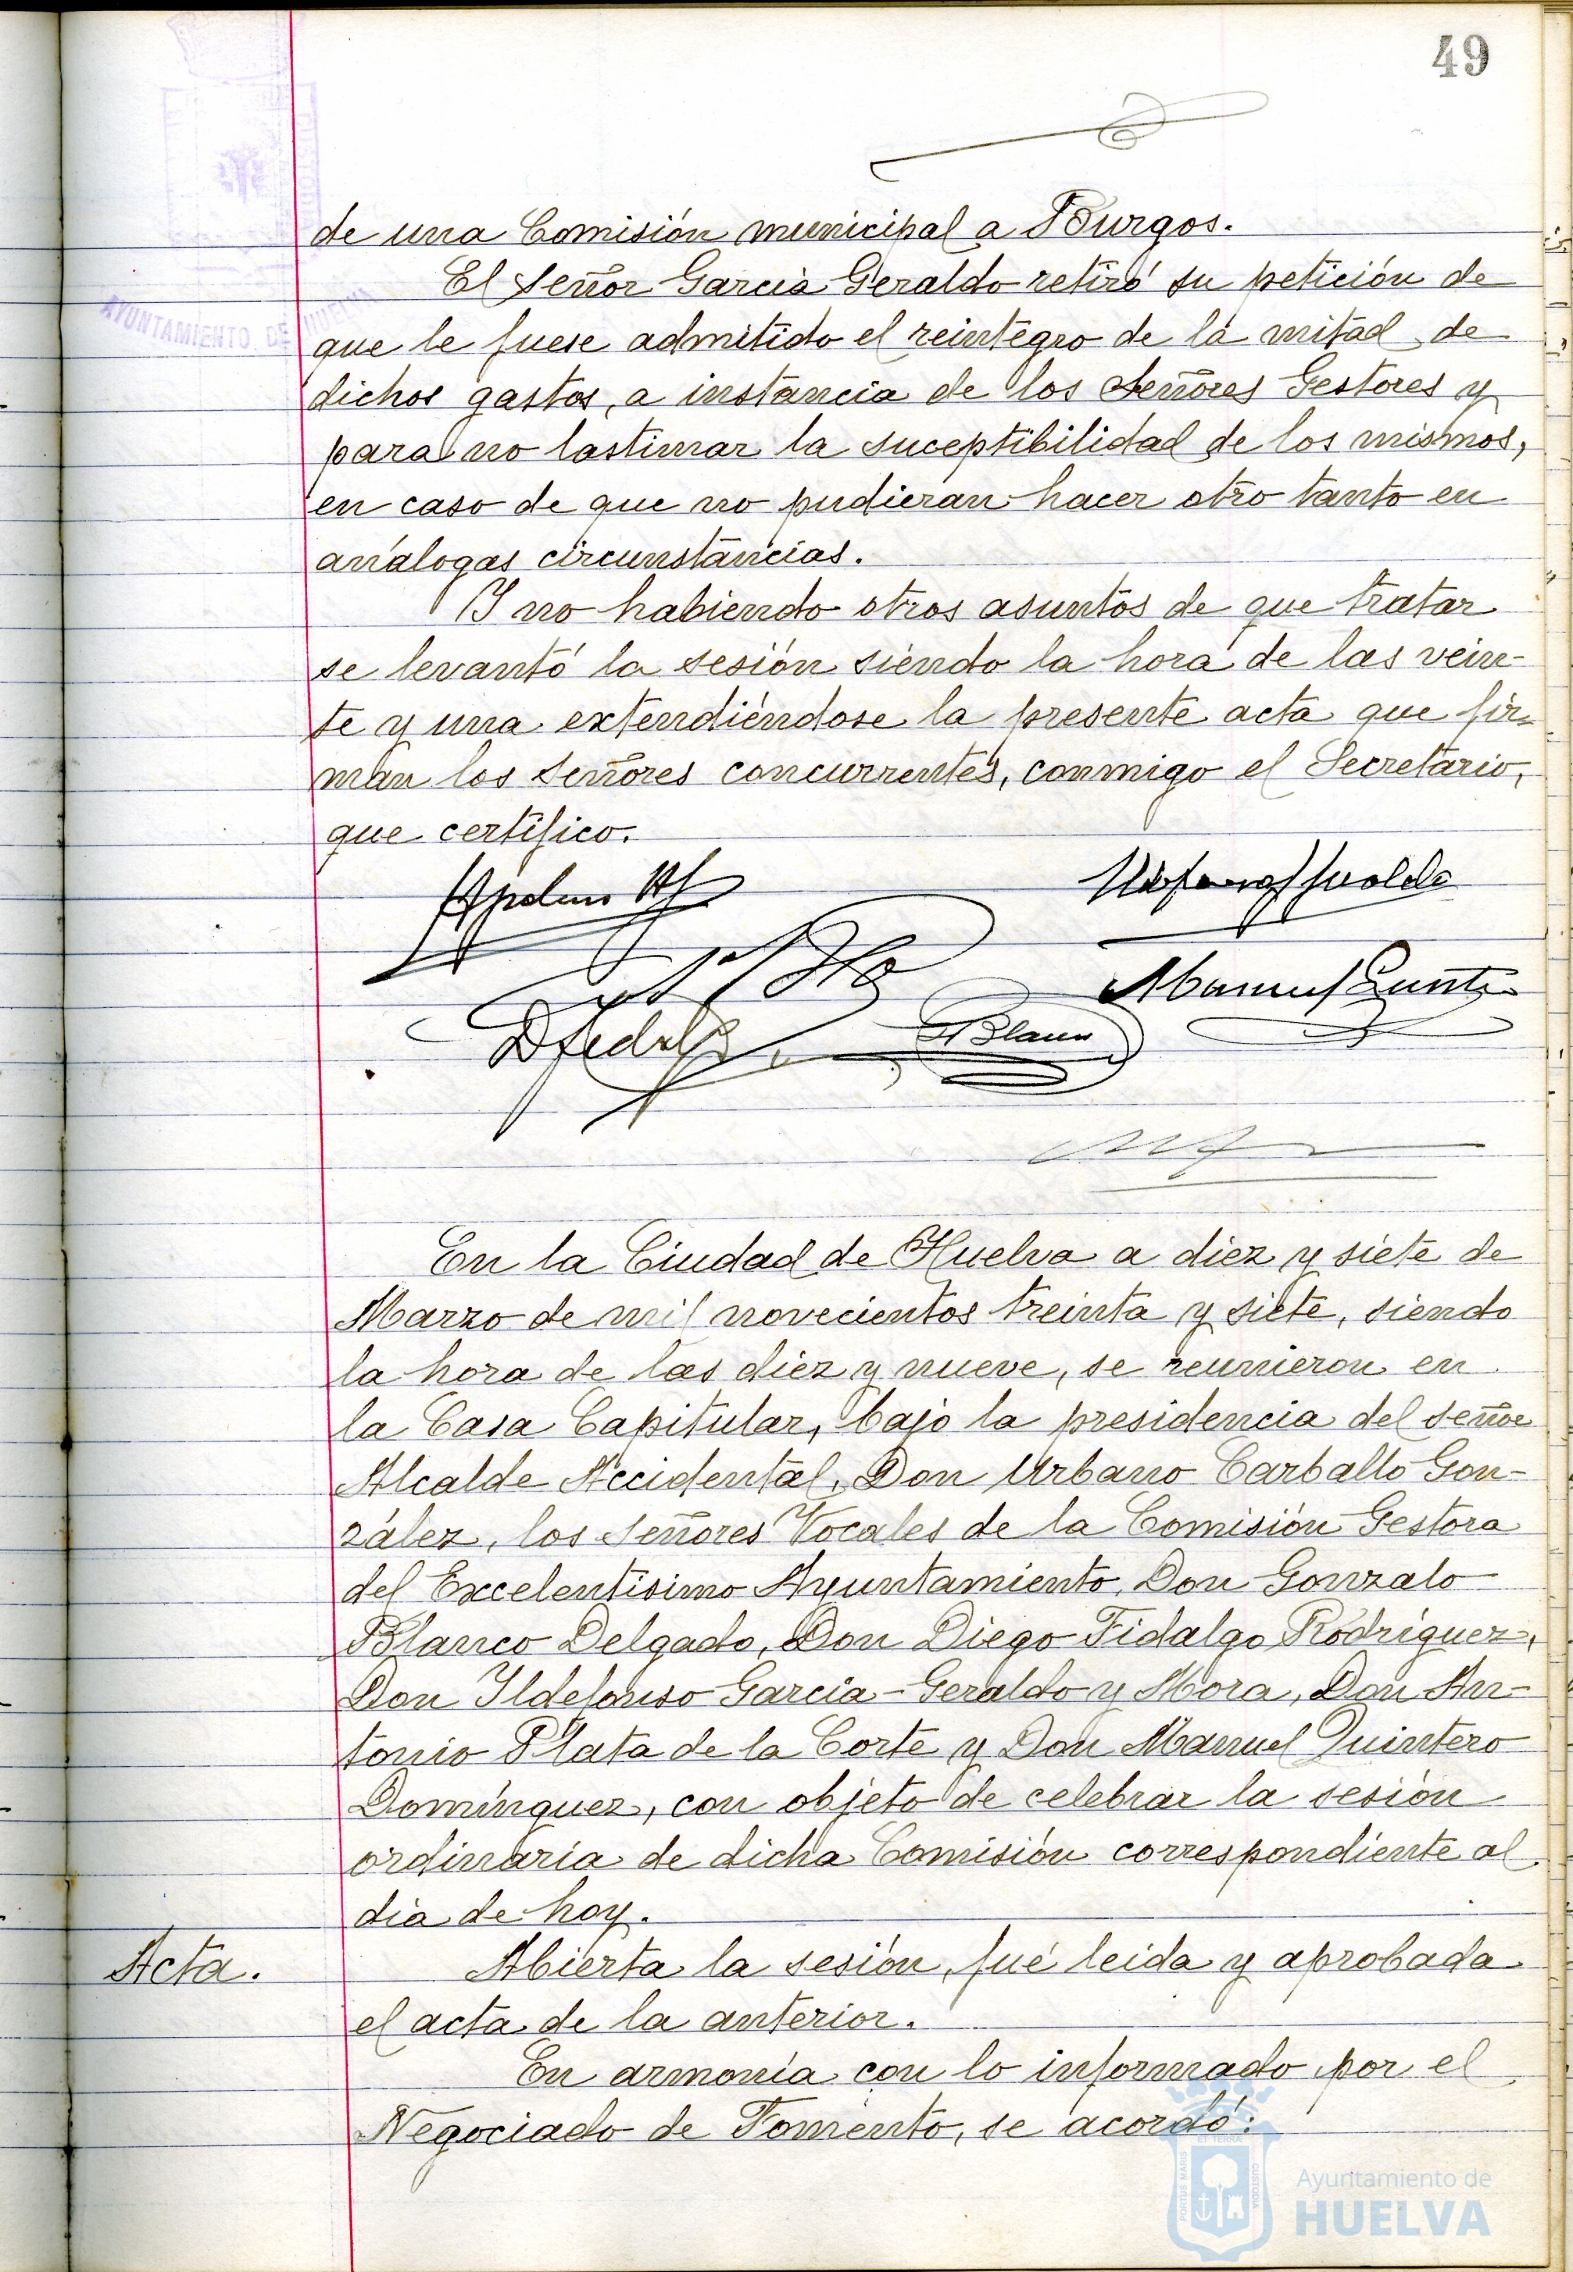 49
AYUNTAMIENTO DE HUELVA
de una Comisión municipal a Burgos.
El Señor García Geraldo retiró su petición de
que le fuese admitido el reintegro de la mitad de
dichos gastos, a instancia de los Señores Gestores y
para no lastimar la suceptibilidad de los mismos,
en caso de que no pudieran hacer otro tanto en
análogas circunstancias.
Y no habiendo otros asuntos de que tratar
se levantó la sesión siendo la hora de las vein-
te y una extendiéndose la presente acta que fir-
man los Señores concurrentes, conmigo el Secretario,
que certifico.
Manuel Quinte
D Fidalgo
G Blanco
En la Ciudad de Huelva a diez y siete de
Marzo de mil novecientos treinta y siete, siendo
la hora de las diez y nueve, se reunieron en
la Casa Capitular, bajo la presidencia del señor
Alcalde Accidental, Don Urbano Carballo Gon-
zález, los Señores Vocales de la Comisión Gestora
del Excelentísimo Ayuntamiento, Don Gonzalo
Blanco Delgado, Don Diego Fidalgo Rodríguez,
Don Ildefonso García-Geraldo y Mora, Don An-
tonio Plata de la Corte y Don Manuel Quintero
Domínguez, con objeto de celebrar la sesión
ordinaria de dicha Comisión correspondiente al
día de hoy.
Acta.
Abierta la sesión, fué leída y aprobada
el acta de la anterior.
En armonía con lo informado por el
Negociado de Fomento, se acordó:
PORTUS MARIS ET TERRAE CUSTODIA
Ayuntamiento de
HUELVA